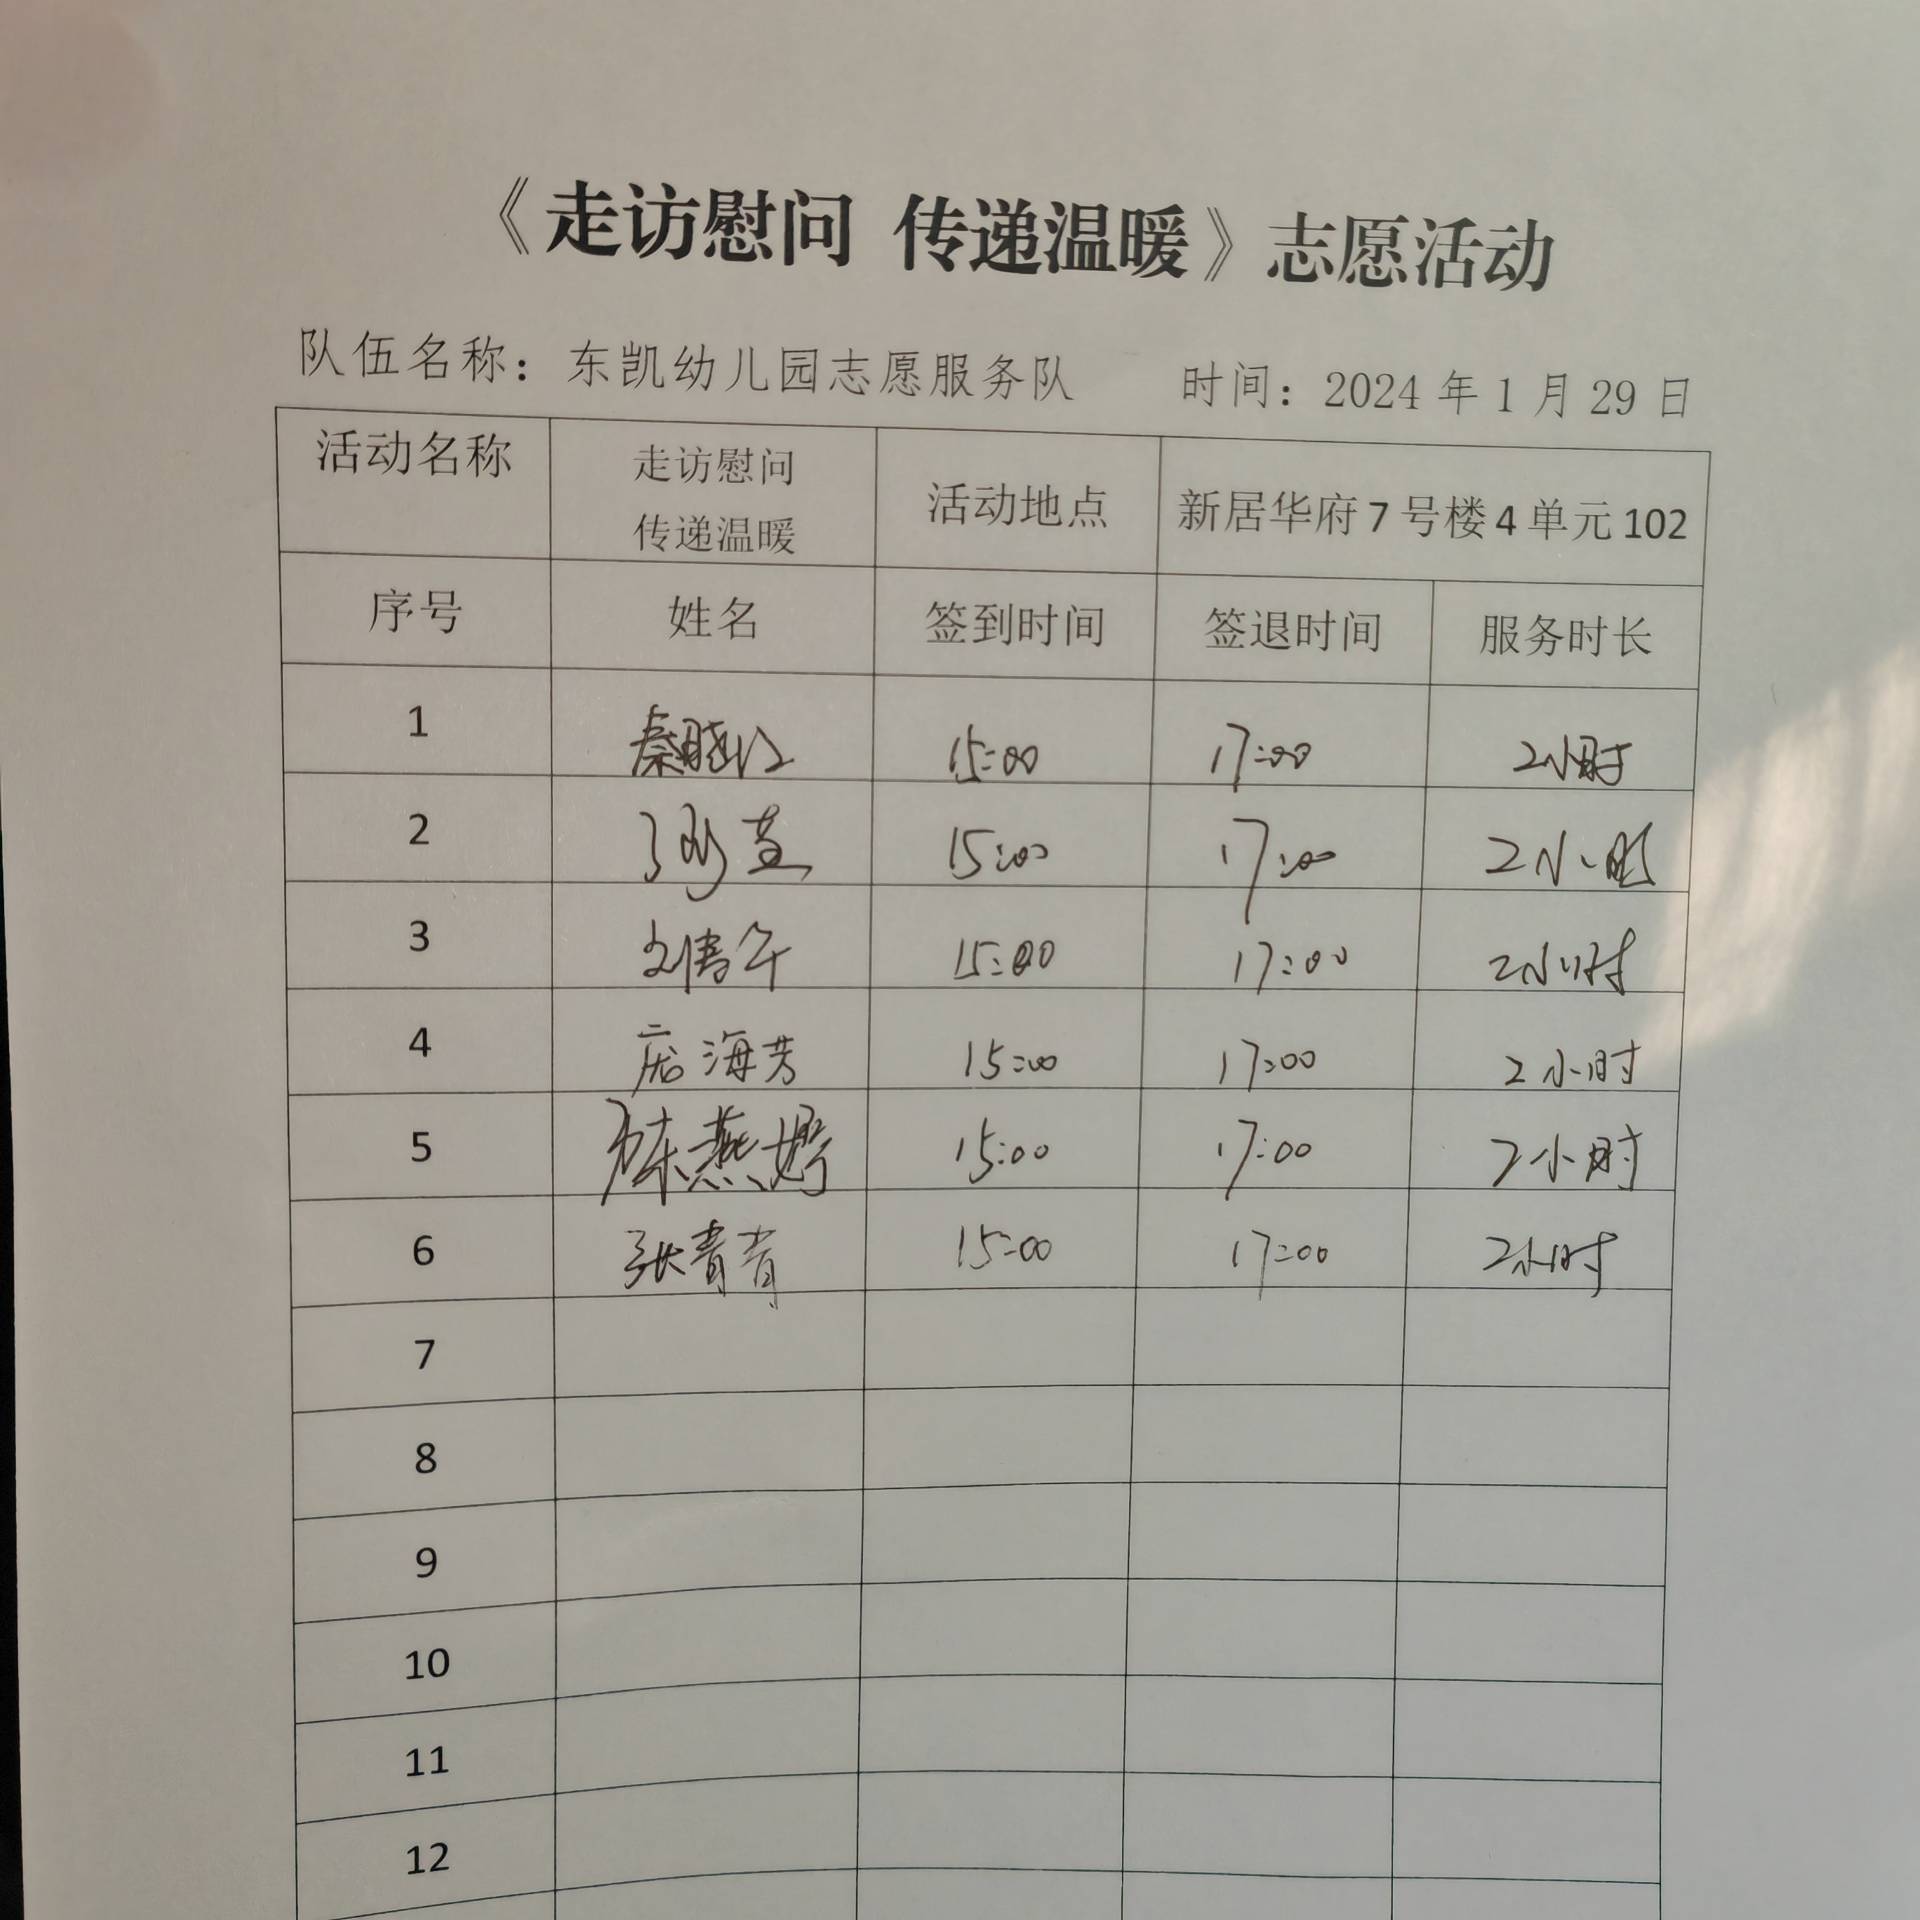 《走访慰问 传递温暖》志愿活动
队伍名称：东凯幼儿园志愿服务队 时间：2024年1月29日
活动名称 走访慰问 传递温暖 活动地点 新居华府7号楼4单元102
序号 姓名 签到时间 签退时间 服务时长
1 秦晓 15:00 17:00 2小时
2 15:00 17:00 2小时
3 刘倩 15:00 17:00 2小时
4 庞海芳 15:00 17:00 2小时
5 陈燕婷 15:00 17:00 2小时
6 张青青 15:00 17:00 2小时
7
8
9
10
11
12